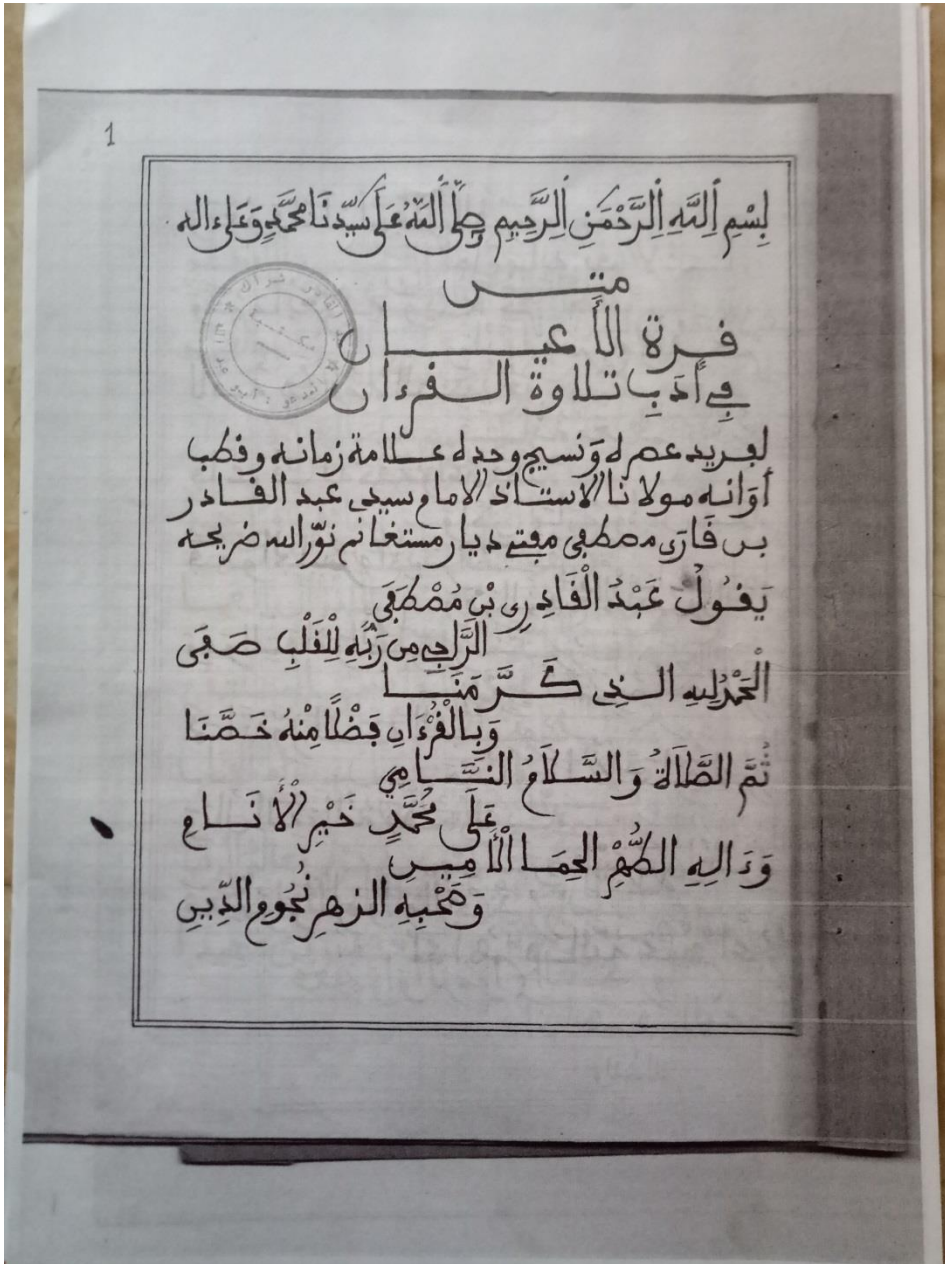 1
بِسْمِ اِللَّهِ اِلرَّحْمَنِ اِلرَّحِيمِ صَلَّى اَللَّهُ عَلَى سَيِّدِنَا مُحَمَّدٍ وَعَلَى ءاله
متن
قرة الأعيان
فِي أَدَبِ تلاوة القرءان
لفريد عصره وَنسيج وحده علامة زمانه وقطب
أوَانه مولانا الاستاذ الامام سيدي عبد القادر
بن قَارَى مصطفى مفتي ديار مستغانم نوّر الله ضريحه
يَقُولُ عَبْدُ الْقَادِرِي بْن مُصْطَفَى
الرَّاجِي مِن رَبِّهِ لِلْقَلْبِ صَفَى
الْحَمْدُ لِلهِ الذِى كَرَّمَنَا
وَبِالْقُرْءَانِ فَضْلًا مِنْهُ خَصَّنَا
ثُمَّ الصَّلَاةُ وَالسَّلَامُ النَّامِي
عَلَى مُحَمَّدٍ خَيْرِ الْأَنَامِ
وَءَالِهِ الطُّهْرِ الحِمَا الْأَمِينِ
وَصَحْبِهِ الزهرِ نُجُومِ الدِّينِ